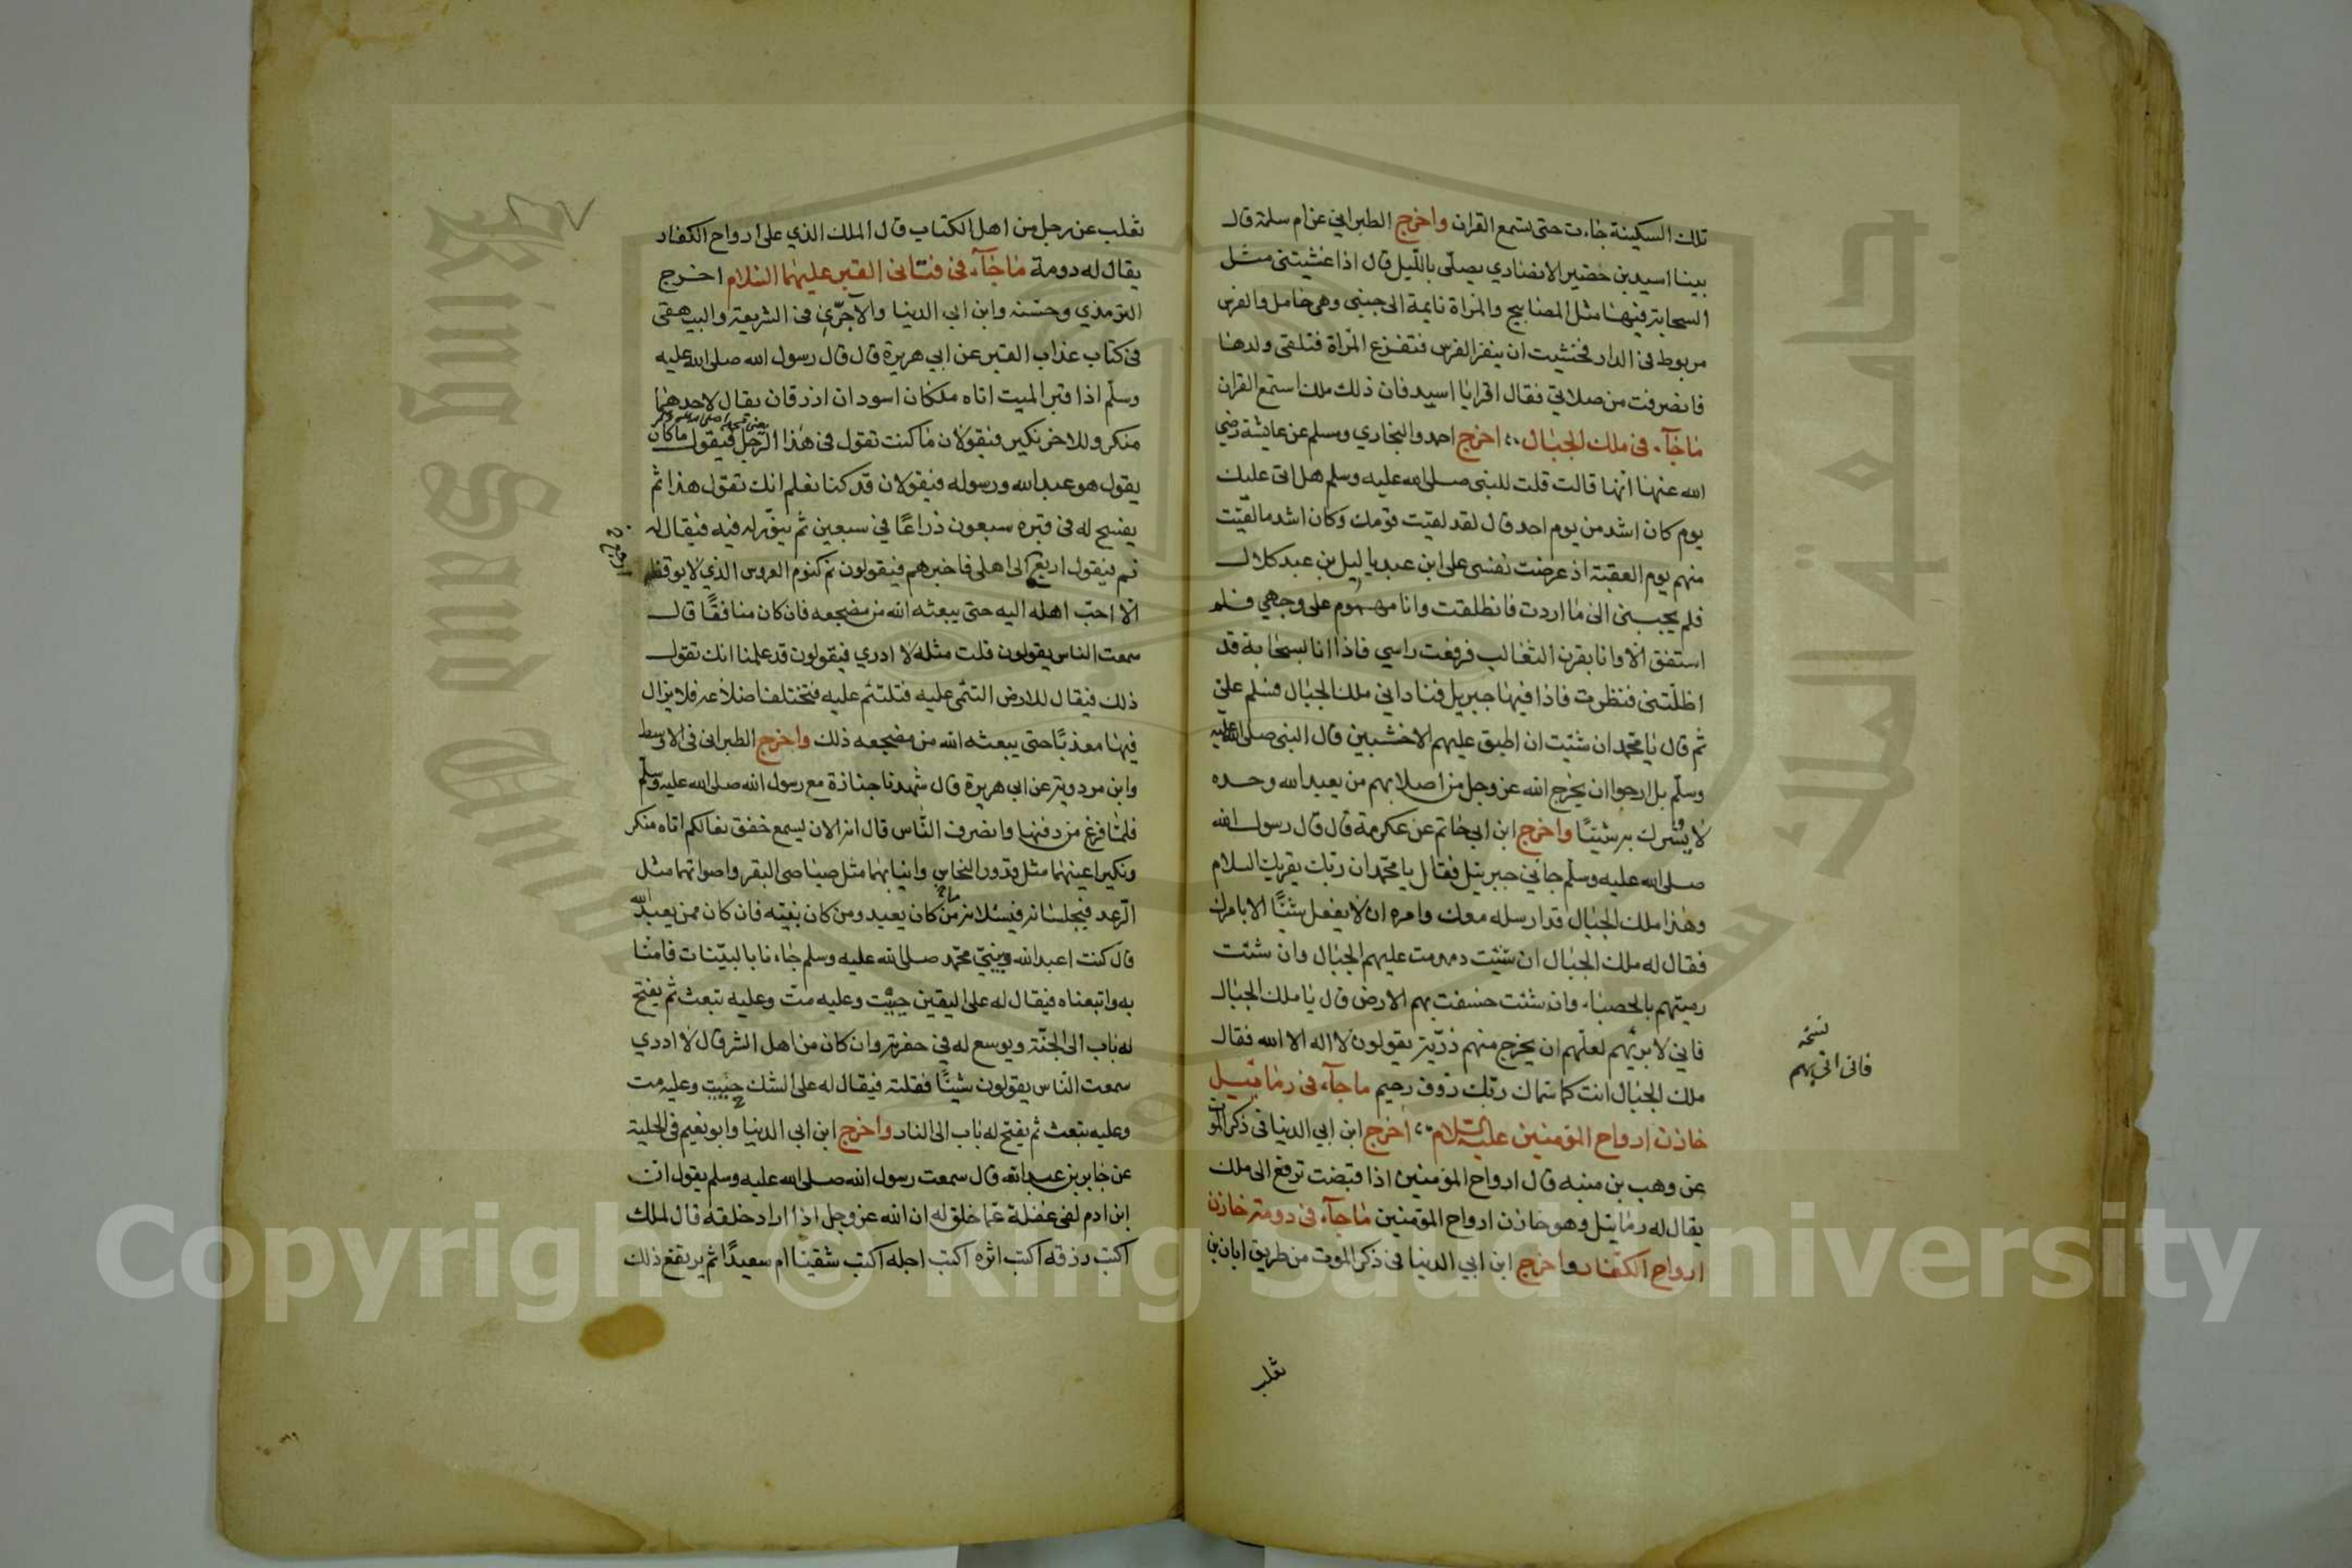 تلك السكينة جاءت حتى تستمع القران واخرج الطبراني عن ام سلمة قال
بينا اسيد بن حضير الانصاري يصلي بالليل قال اذا غشيتنى مثل
السحابة فيها مثل المصابيح والمراة نايمة الى جنبى وهى حامل والفرس
مربوط فى الدار فخشيت ان ينفر الفرس فتفزع المراة فتلقى ولدها
فانصرفت من صلاتي فقال اقرا يا اسيد فان ذلك ملك استمع القران
ماجآء فى ملك الجبال اخرج احمد والبخاري ومسلم عن عايشة رضي
الله عنها انها قالت قلت للنبى صلى الله عليه وسلم هل اتى عليك
يوم كان اشد من يوم احد قال لقد لقيت من قومك وكان اشد ما لقيت
منهم يوم العقبة اذ عرضت نفسى على ابن عبد يا ليل بن عبد كلال
فلم يجبنى الى ما اردت فانطلقت وانا مهموم على وجهي فلم
استفق الا وانا بقرن الثعالب فرفعت راسي فاذا انا بسحابة قد
اظلتنى فنظرت فاذا فيها جبريل فناداني ملك الجبال فسلم علي
ثم قال يا محمد ان شئت ان اطبق عليهم الاخشبين قال النبى صلى الله عليه
وسلم بل ارجوا ان يخرج الله عز وجل من اصلابهم من يعبد الله وحده
لا يشرك به شيئًا واخرج ابن ابي حاتم عن عكرمة قال قال رسول الله
صلى الله عليه وسلم جاني جبرئيل فقال يا محمد ان ربك يقريك السلام
وهذا ملك الجبال قد ارسله معك وامره ان لا يفعل شيئًا الا بامرك
فقال له ملك الجبال ان شئت دمدمت عليهم الجبال وان شئت
رميتهم بالحصباء وان شئت خسفت بهم الارض قال يا ملك الجبال
فاني لا بد لهم لعلهم ان يخرج منهم ذرية يقولون لا اله الا الله فقال
ملك الجبال انت كما سماك ربك رؤوف رحيم ماجآء فى رمائيل
خازن ارواح المؤمنين عليه السلام اخرج ابن ابي الدنيا فى ذكر الموت
عن وهب بن منبه قال ارواح المؤمنين اذا قبضت ترفع الى ملك
يقال له رمائيل وهو خازن ارواح المؤمنين ماجآء فى دومة خازن
ارواح الكفار واخرج ابن ابي الدنيا فى ذكر الموت من طريق ابان بن
تغلب
نسخه
فانى اتى بهم
تغلب عن رجل من اهل الكتاب قال الملك الذي على ارواح الكفار
يقال له دومة ماجآء فى فتانى القبر عليهما السلام اخرج
الترمذي وحسنه وابن ابي الدنيا والآجرّي فى الشريعة والبيهقى
فى كتاب عذاب القبر عن ابي هريرة قال قال رسول الله صلى الله عليه
وسلم اذا قبر الميت اتاه ملكان اسودان ازرقان يقال لاحدهما
منكر وللاخر نكير فيقولان ما كنت تقول فى هذا الرجل فيقول ما كان
يقول هو عبد الله ورسوله فيقولان قد كنا نعلم انك تقول هذا ثم
يفسح له فى قبره سبعون ذراعًا في سبعين ثم ينور له فيه فيقال له
نم فيقول ارجع الى اهلى فاخبرهم فيقولون نم كنوم العروس الذي لا يوقظه
الا احب اهله اليه حتى يبعثه الله من مضجعه فان كان منافقًا قال
سمعت الناس يقولون قلت مثله لا ادري فيقولون قد علمنا انك تقول
ذلك فيقال للارض التئمى عليه فتلتئم عليه فتختلف اضلاعه فلا يزال
فيها معذبًا حتى يبعثه الله من مضجعه ذلك واخرج الطبرانى فى الاوسط
وابن مردويه عن ابي هريرة قال شهدنا جنازة مع رسول الله صلى الله عليه وسلم
فلما فرغ من دفنها وانصرف الناس قال انه الان ليسمع خفق نعالكم اتاه منكر
ونكير اعينهما مثل قدور النحاس وانيابهما مثل صياصى البقر واصواتهما مثل
الرعد فيجلسانه فيسئلانه من كان يعبد ومن كان نبيه فان كان ممن يعبد الله
قال كنت اعبد الله ونبيّي محمد صلى الله عليه وسلم جاءنا بالبينات فامنا
به واتبعناه فيقال له على اليقين حييت وعليه مت وعليه تبعث ثم يفتح
له باب الى الجنة ويوسع له في حفرته وان كان من اهل الشر قال لا ادري
سمعت الناس يقولون شيئًا فقلته فيقال له على الشك حييت وعليه مت
وعليه تبعث ثم يفتح له باب الى النار واخرج ابن ابي الدنيا وابو نعيم فى الحلية
عن جابر بن عبد الله قال سمعت رسول الله صلى الله عليه وسلم يقول ان
ابن ادم لفى غفلة عما خلق له ان الله عز وجل اذا اراد خلقه قال لملك
اكتب رزقه اكتب اثره اكتب اجله اكتب شقيًا ام سعيدًا ثم يرتفع ذلك
King Saud University
جامعة الملك سعود
Copyright © King Saud University